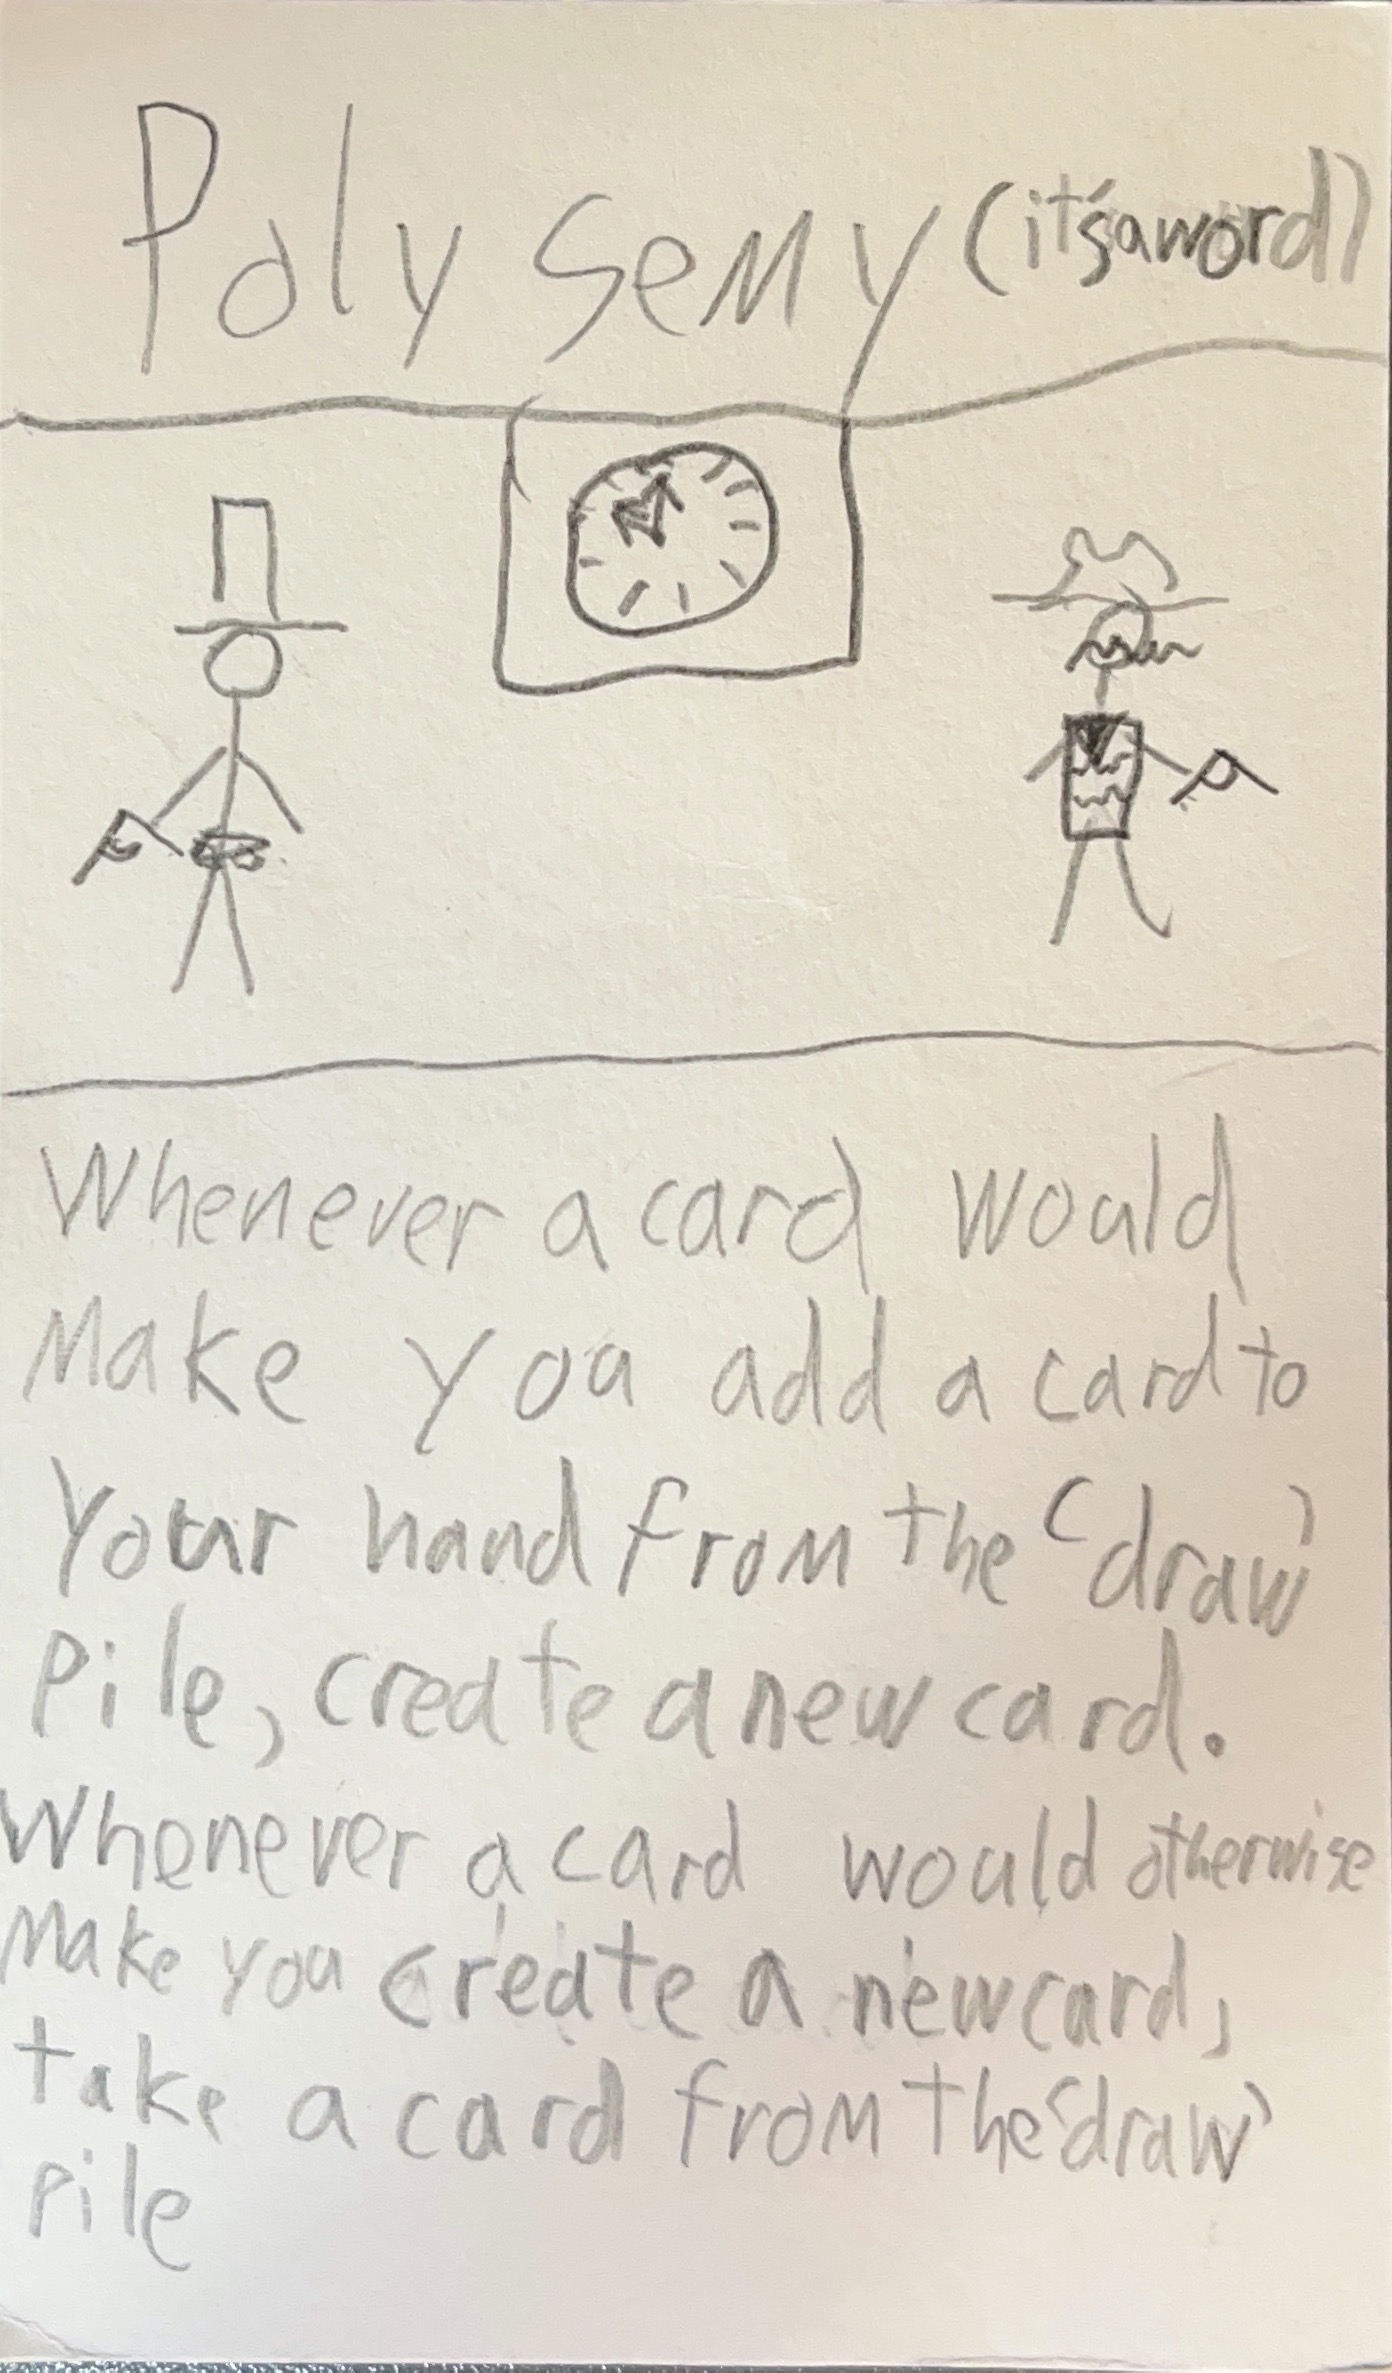 Polysemy (it's a word)
Whenever a card would
Make you add a card to
Your hand from the 'draw'
Pile, create a new card.
Whenever a card would otherwise
Make you create a new card,
take a card from the 'draw'
Pile